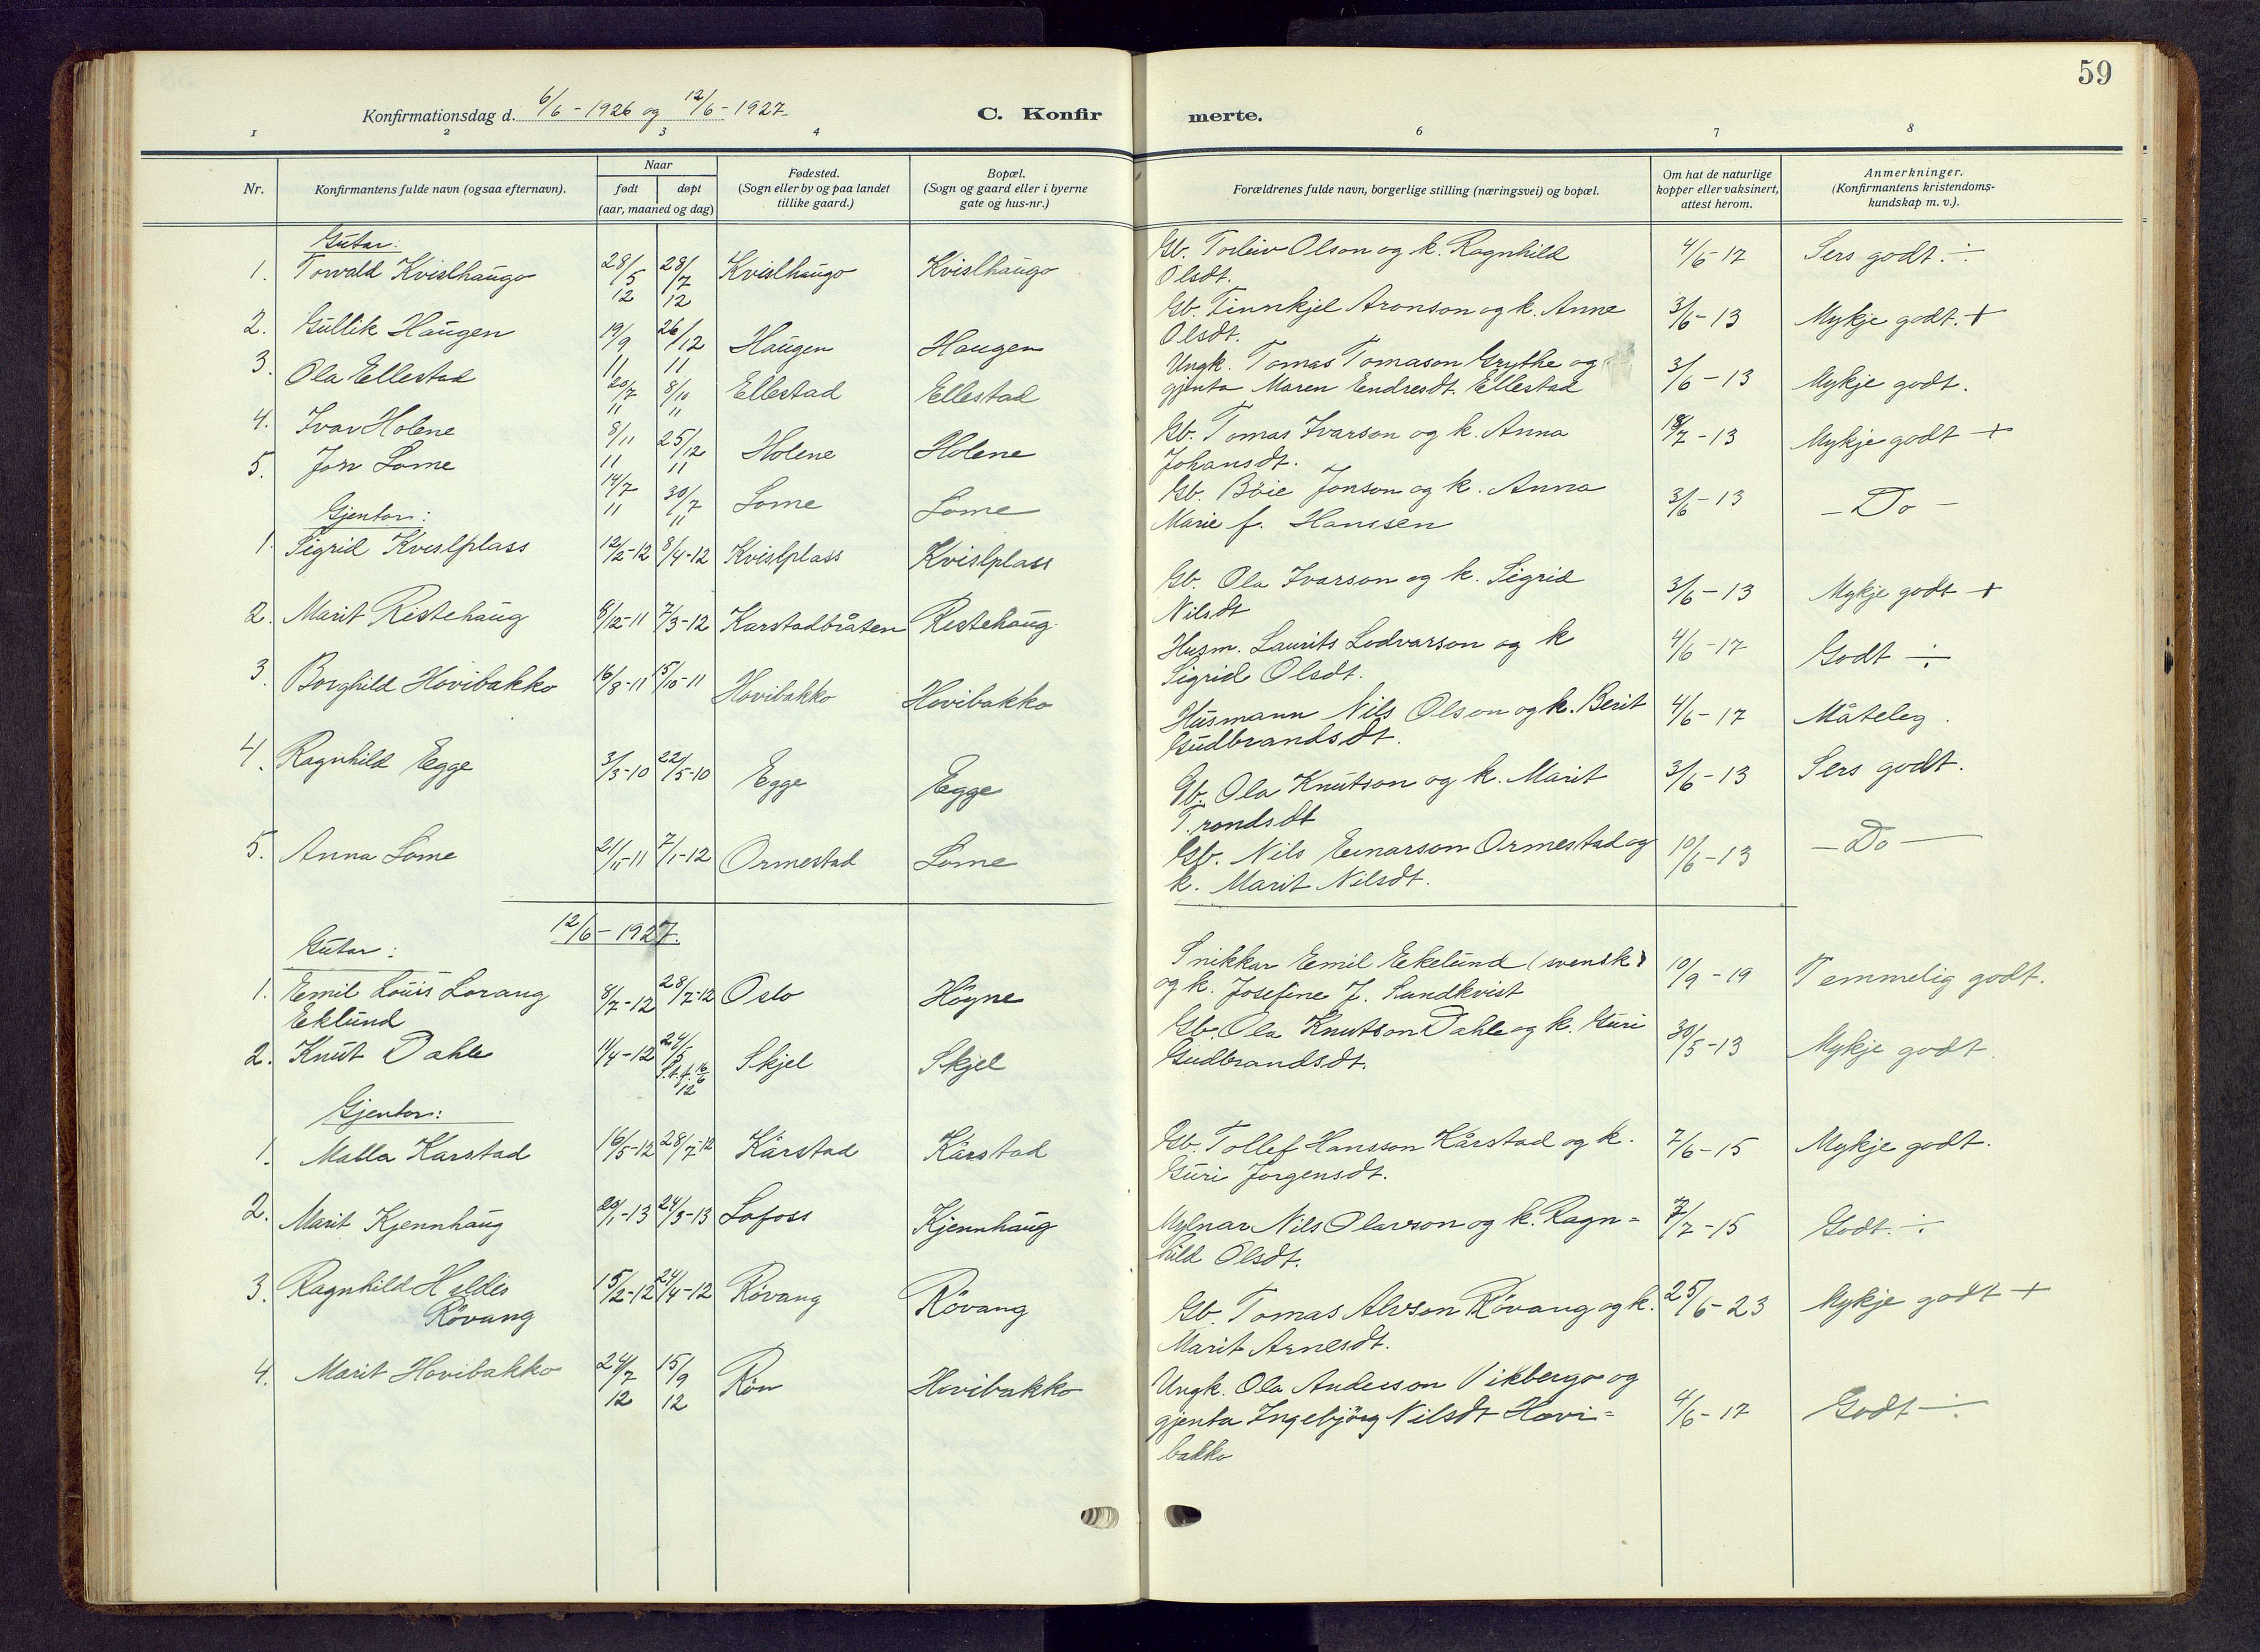 59
Konfirmationsdag d. 6/6 - 1926 og 12/6 - 1927. C. Konfirmerte.
1 2 3 4 6 7 8
Nr. Konfirmantens fulde navn (ogsaa efternavn). Naar født døpt (aar, maaned og dag) Fødested. (Sogn eller by og paa landet tillike gaard.) Bopæl. (Sogn og gaard eller i byerne gate og hus-nr.) Forældrenes fulde navn, borgerlige stilling (næringsvei) og bopæl. Om hat de naturlige kopper eller vaksinert, attest herom. Anmerkninger. (Konfirmantens kristendoms-kundskap m. v.).
Gutar:
1. Torvald Kvislhaugo 28/5 12 28/7 12 Kvislhaugo Kvislhaugo Gb. Torleiv Olson og k. Ragnhild Olsdt. 4/6-17 Sers godt. ÷
2. Gullik Haugen 19/9 11 26/12 11 Haugen Haugen Gb. Finnkjel Aronson og k. Anne Olsdt. 3/6-13 Mykje godt. +
3. Ola Ellestad 20/7 11 8/10 11 Ellestad Ellestad Ungk. Tomas Tomason Grythe og gjenta Maren Endresdt. Ellestad 3/6-13 Mykje godt.
4. Ivar Holene 8/11 11 25/12 11 Holene Holene Gb. Tomas Ivarson og k. Anna Johansdt. 18/7-13 Mykje godt +
5. Jon Lome 14/7 11 30/7 11 Lome Lome Gb. Böie Jonson og k. Anna Marie f. Hanssen 3/6-13 - Do -
Gjentor:
1. Sigrid Kvislplass 12/2-12 8/4-12 Kvislplass Kvislplass Gb. Ola Ivarson og k. Sigrid Nilsdt 3/6-13 Mykje godt +
2. Marit Ristehaug 8/12-11 7/3-12 Karstadbråten Ristehaug Husm. Laurits Lodvarson og k Sigrid Olsdt. 4/6-17 Godt ÷
3. Borghild Hovibakko 16/8-11 15/10-11 Hovibakko Hovibakko Husmann Nils Olson og k. Berit Gudbrandsdt. 4/6-17 Måteleg.
4. Ragnhild Egge 3/3-10 22/5-10 Egge Egge Gb. Ola Knutson og k. Marit Trondsdt 3/6-13 Sers godt.
5. Anna Lome 21/11-11 7/1-12 Ormestad Lome Gb. Nils Einarson Ormestad og k. Marit Nilsdt. 10/6-13 - Do -
12/6 - 1927.
Gutar:
1. Emil Louis Lorang Eklund 8/7-12 28/7-12 Oslo Högne Snikkar Emil Ekelund (svensk) og k. Josefine J. Sundkvist 10/9-19 Temmelig godt.
2. Knut Dahle 11/4-12 24/5 St. f. 16/6 12 Skjel Skjel Gb. Ola Knutson Dahle og k. Guri Gudbrandsdt. 30/5-13 Mykje godt.
Gjentor:
1. Malla Karstad 16/5-12 28/7-12 Kårstad Kårstad Gb. Tollef Hansson Kårstad og k. Guri Jorgensdt. 7/6-15 Mykje godt.
2. Marit Kjennhaug 20/1-13 24/3-13 Lofoss Kjennhaug Mylnar Nils Olavson og k. Ragn=hild Olsdt. 7/7-15 Godt. ÷
3. Ragnhild Heldis Rövang 15/2-12 24/4-12 Rövang Rövang Gb. Tomas Alvson Rövang og k. Marit Arnesdt. 25/6-23 Mykje godt +
4. Marit Hovibakko 24/7 12 15/9 12 Rön Hovibakko Ungk. Ola Anderson Vikbergo og gjenta Ingebjörg Nilsdt Hovi=bakko 4/6-17 Godt ÷